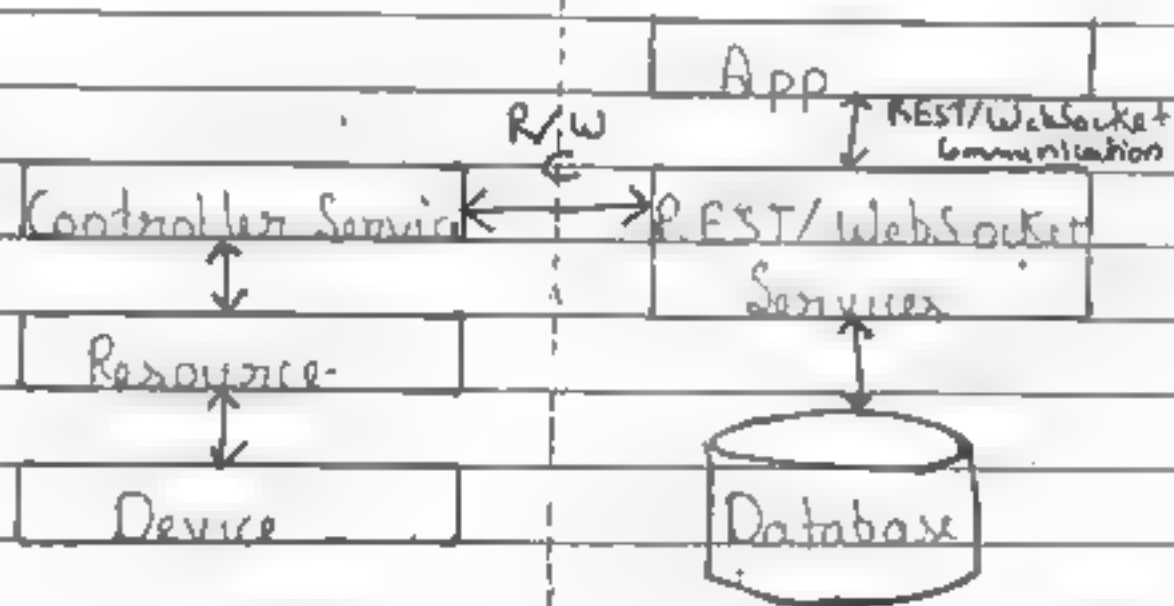 App
REST/WebSocket
Communication
R/W
Controller Servic
REST/WebSocket
Services
Resource
Device
Database